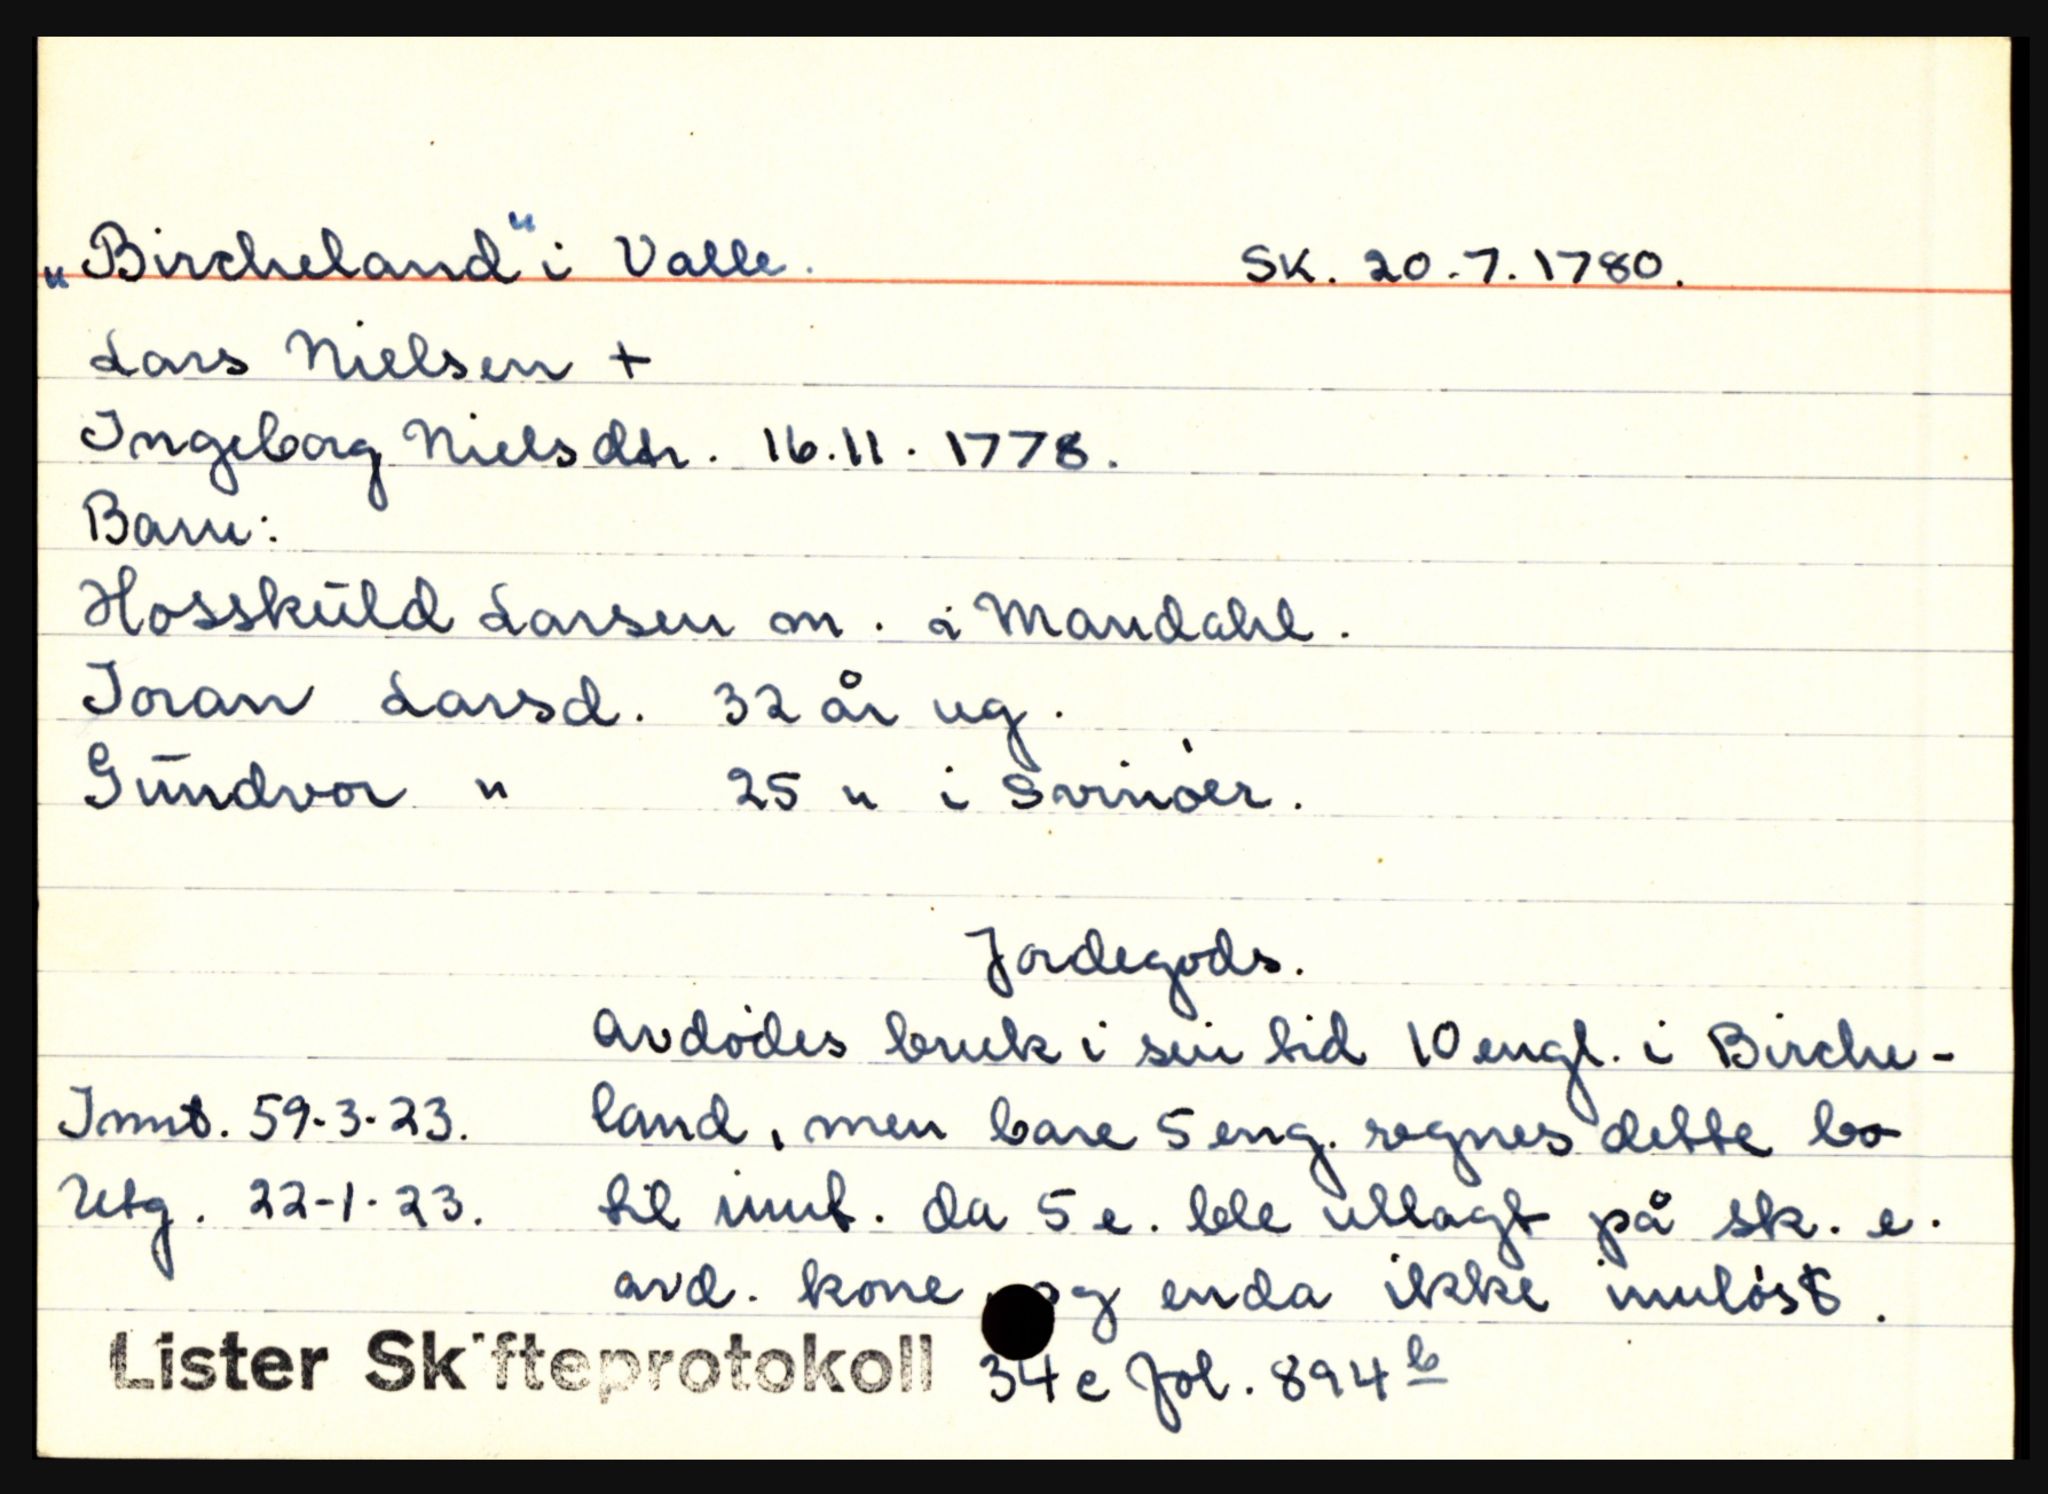 „Bircheland" i Valle. SK. 20.7.1780.
Lars Nielsen +
Ingeborg Nielsdtr. 16.11.1778.
Barn:
Hosskūld Larsen m. i Mandahl.
Joran Larsd. 32 år ug.
Gūndvor " 25 " i Svinöer.
Jordegods.
Avdödes bruk i sin tid 10 engl. i Birche-
Innt. 59-3-23. land, men bare 5 eng. regnes dette bo
Utg. 22-1-23. til innt. da 5 e. ble utlagt på sk. e.
avd. kone og enda ikke innlöst.
Lister Skifteprotokoll 34 c fol. 894 b